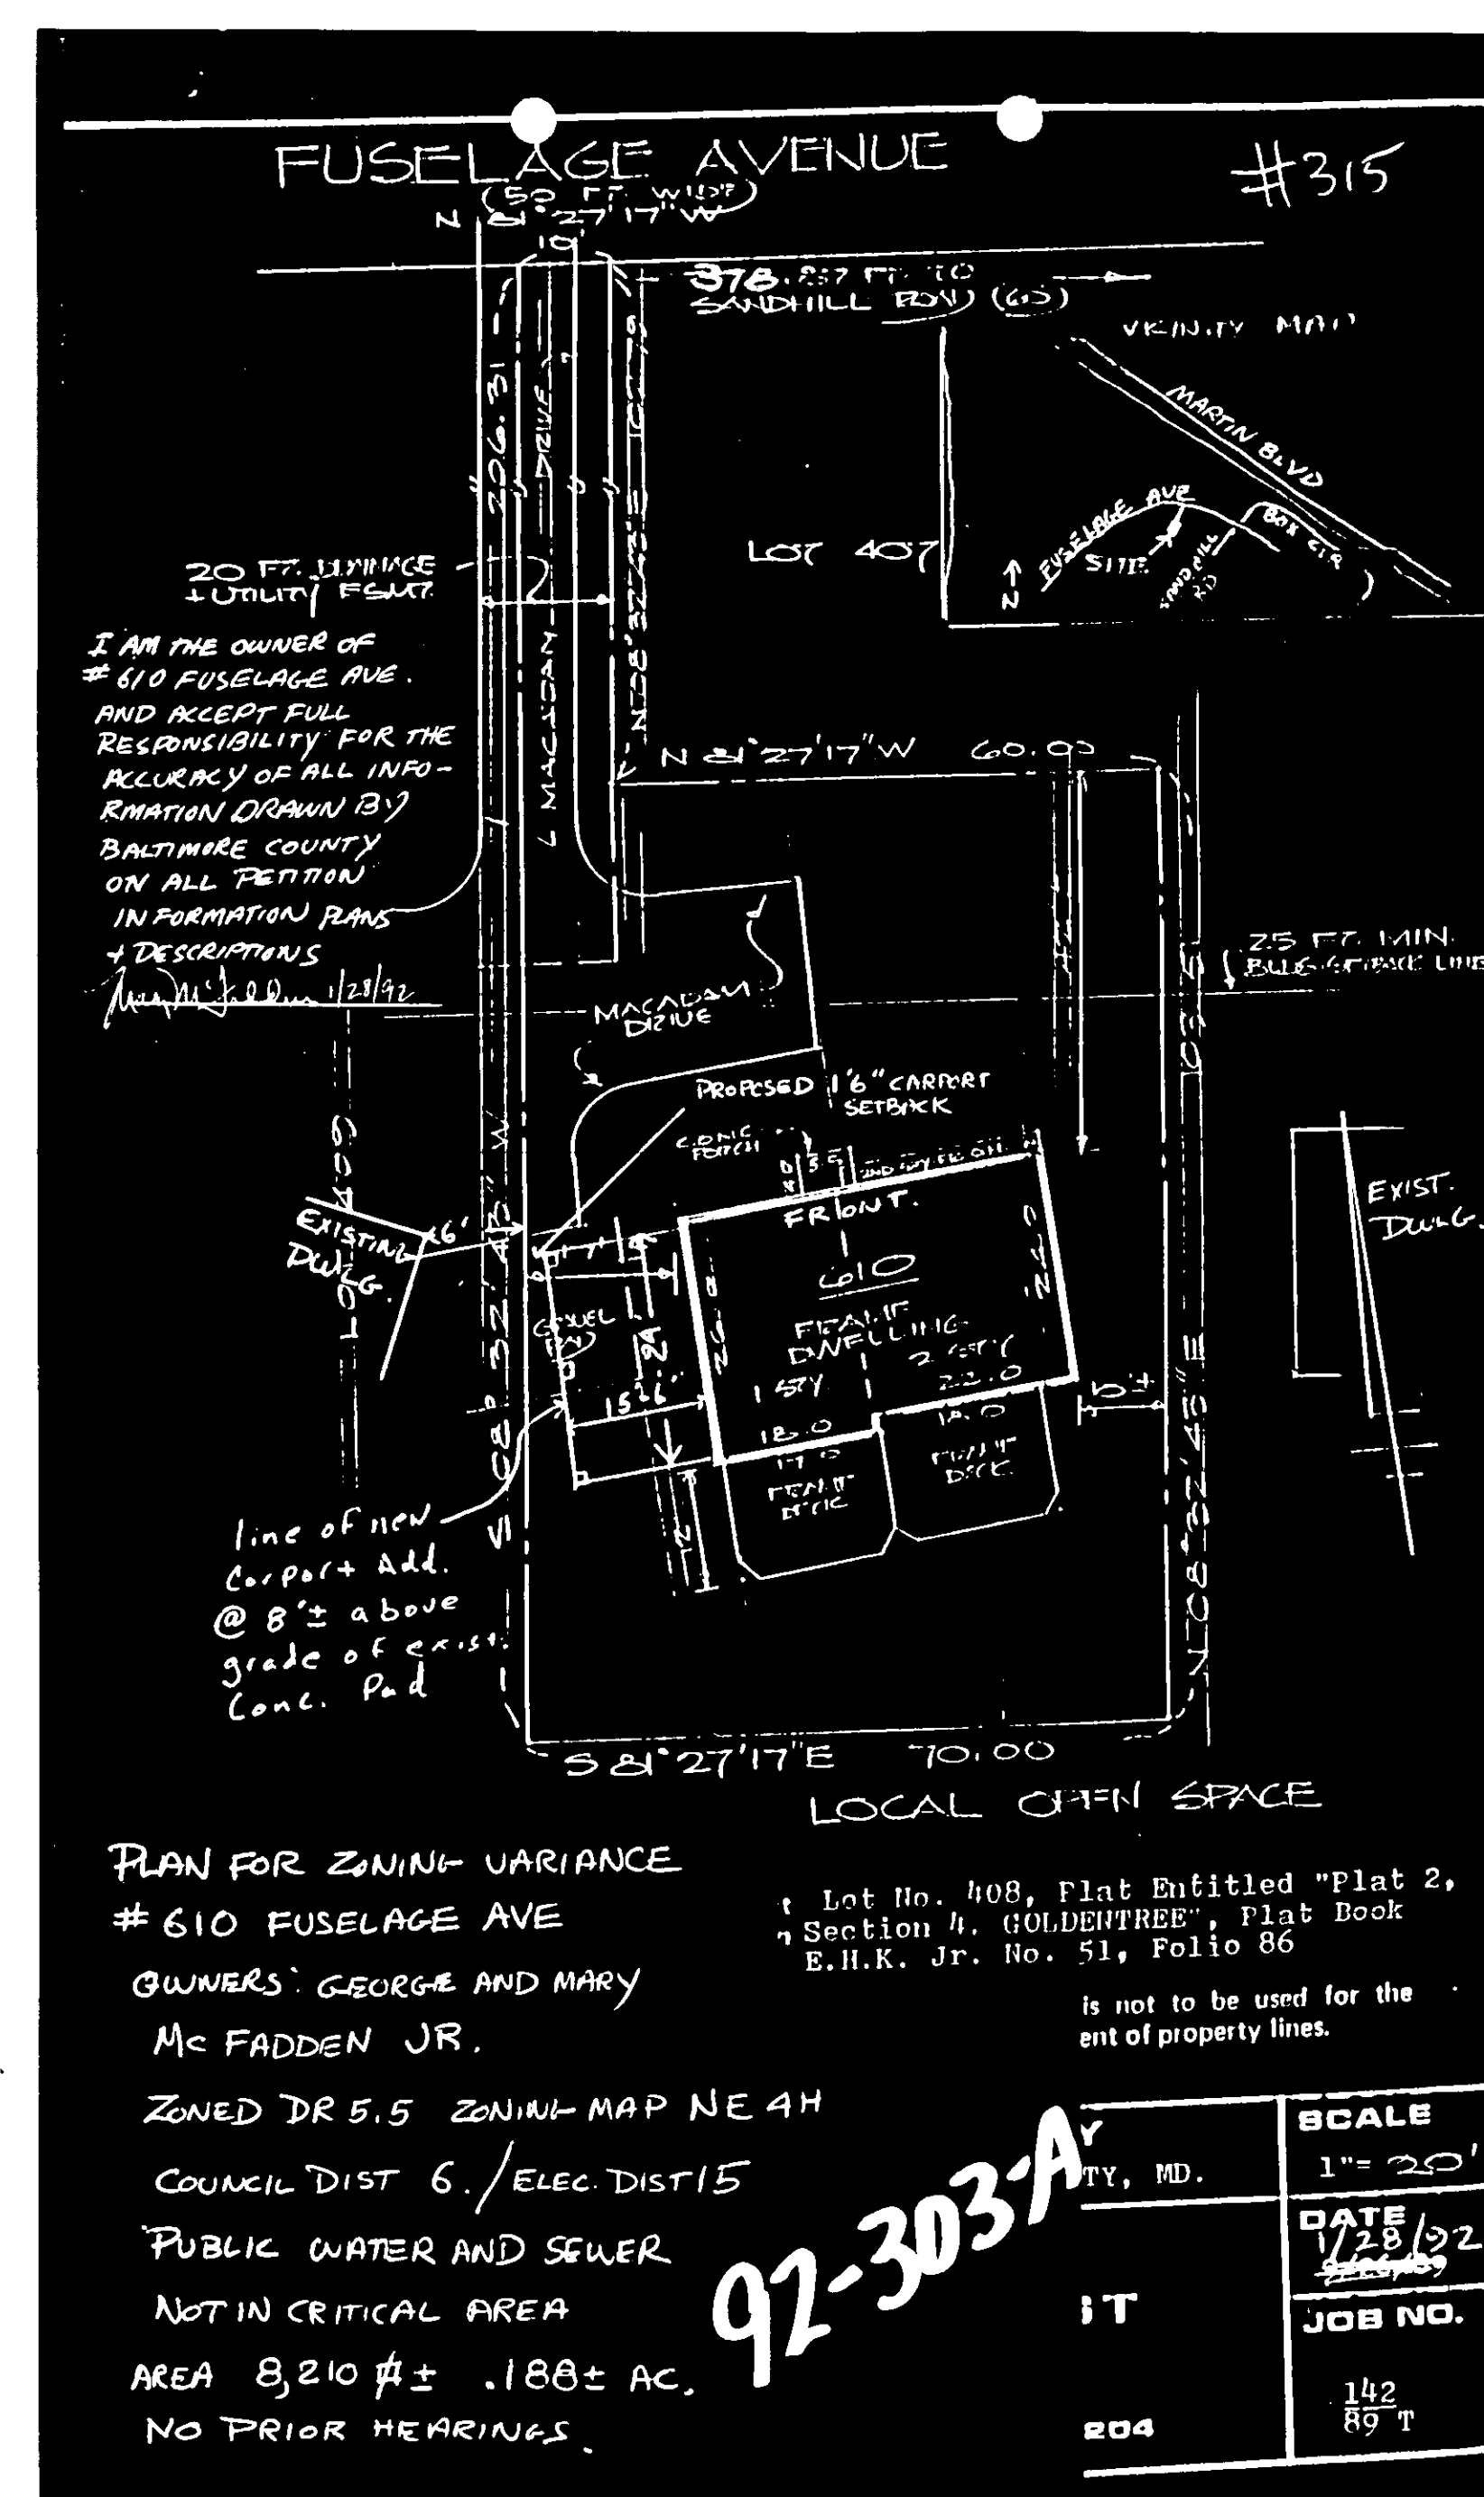 FUSELAGE AVENUE
#315
(50 FT. WIDE)
N 81°27'17"W
10'
378.
SANDHILL ROAD (60)
VICINITY MAP
MARTIN BLVD
FUSELAGE AVE
SITE
N
LOT 407
20 FT. DRAINAGE
+ UTILITY ESMT.
206.31
MACADAM
DRIVE
I AM THE OWNER OF
# 610 FUSELAGE AVE.
AND ACCEPT FULL
RESPONSIBILITY FOR THE
ACCURACY OF ALL INFO-
RMATION DRAWN BY
BALTIMORE COUNTY
ON ALL PETITION
INFORMATION PLANS
+ DESCRIPTIONS
1/28/92
N 81°27'17"W 60.00
25 FT. MIN.
BLDG. SETBACK LINE
MACADAM
DRIVE
PROPOSED 1'6" CARPORT
SETBACK
CONC.
PORCH
LOT 409
EXISTING
DWLG.
6'
FRONT.
610
FRAME
DWELLING
1 STY
2 STY
22.0
18.0
24
15'6"
FRAME
DECK
FRAME
DECK
EXIST.
DWLG.
line of new
Carport Add.
@ 8'± above
grade of exist.
Conc. Pad
S 81°27'17"E 70.00
LOCAL OPEN SPACE
PLAN FOR ZONING VARIANCE
# 610 FUSELAGE AVE
OWNERS: GEORGE AND MARY
Mc FADDEN JR.
ZONED DR 5.5 ZONING MAP NE 4H
COUNCIL DIST 6. / ELEC. DIST 15
PUBLIC WATER AND SEWER
NOT IN CRITICAL AREA
AREA 8,210 ± .188± AC.
NO PRIOR HEARINGS.
Lot No. 408, Plat Entitled "Plat 2,
Section 4, GOLDENTREE", Plat Book
E.H.K. Jr. No. 51, Folio 86
is not to be used for the
ent of property lines.
92-303-A
Y
TY, MD.
SCALE
1"= 20'
DATE
1/28/92
IT
JOB NO.
142
89 T
204